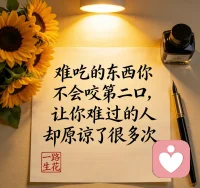 难吃的东西你
不会咬第二口，
让你难过的人
却原谅了很多次
一路
生花